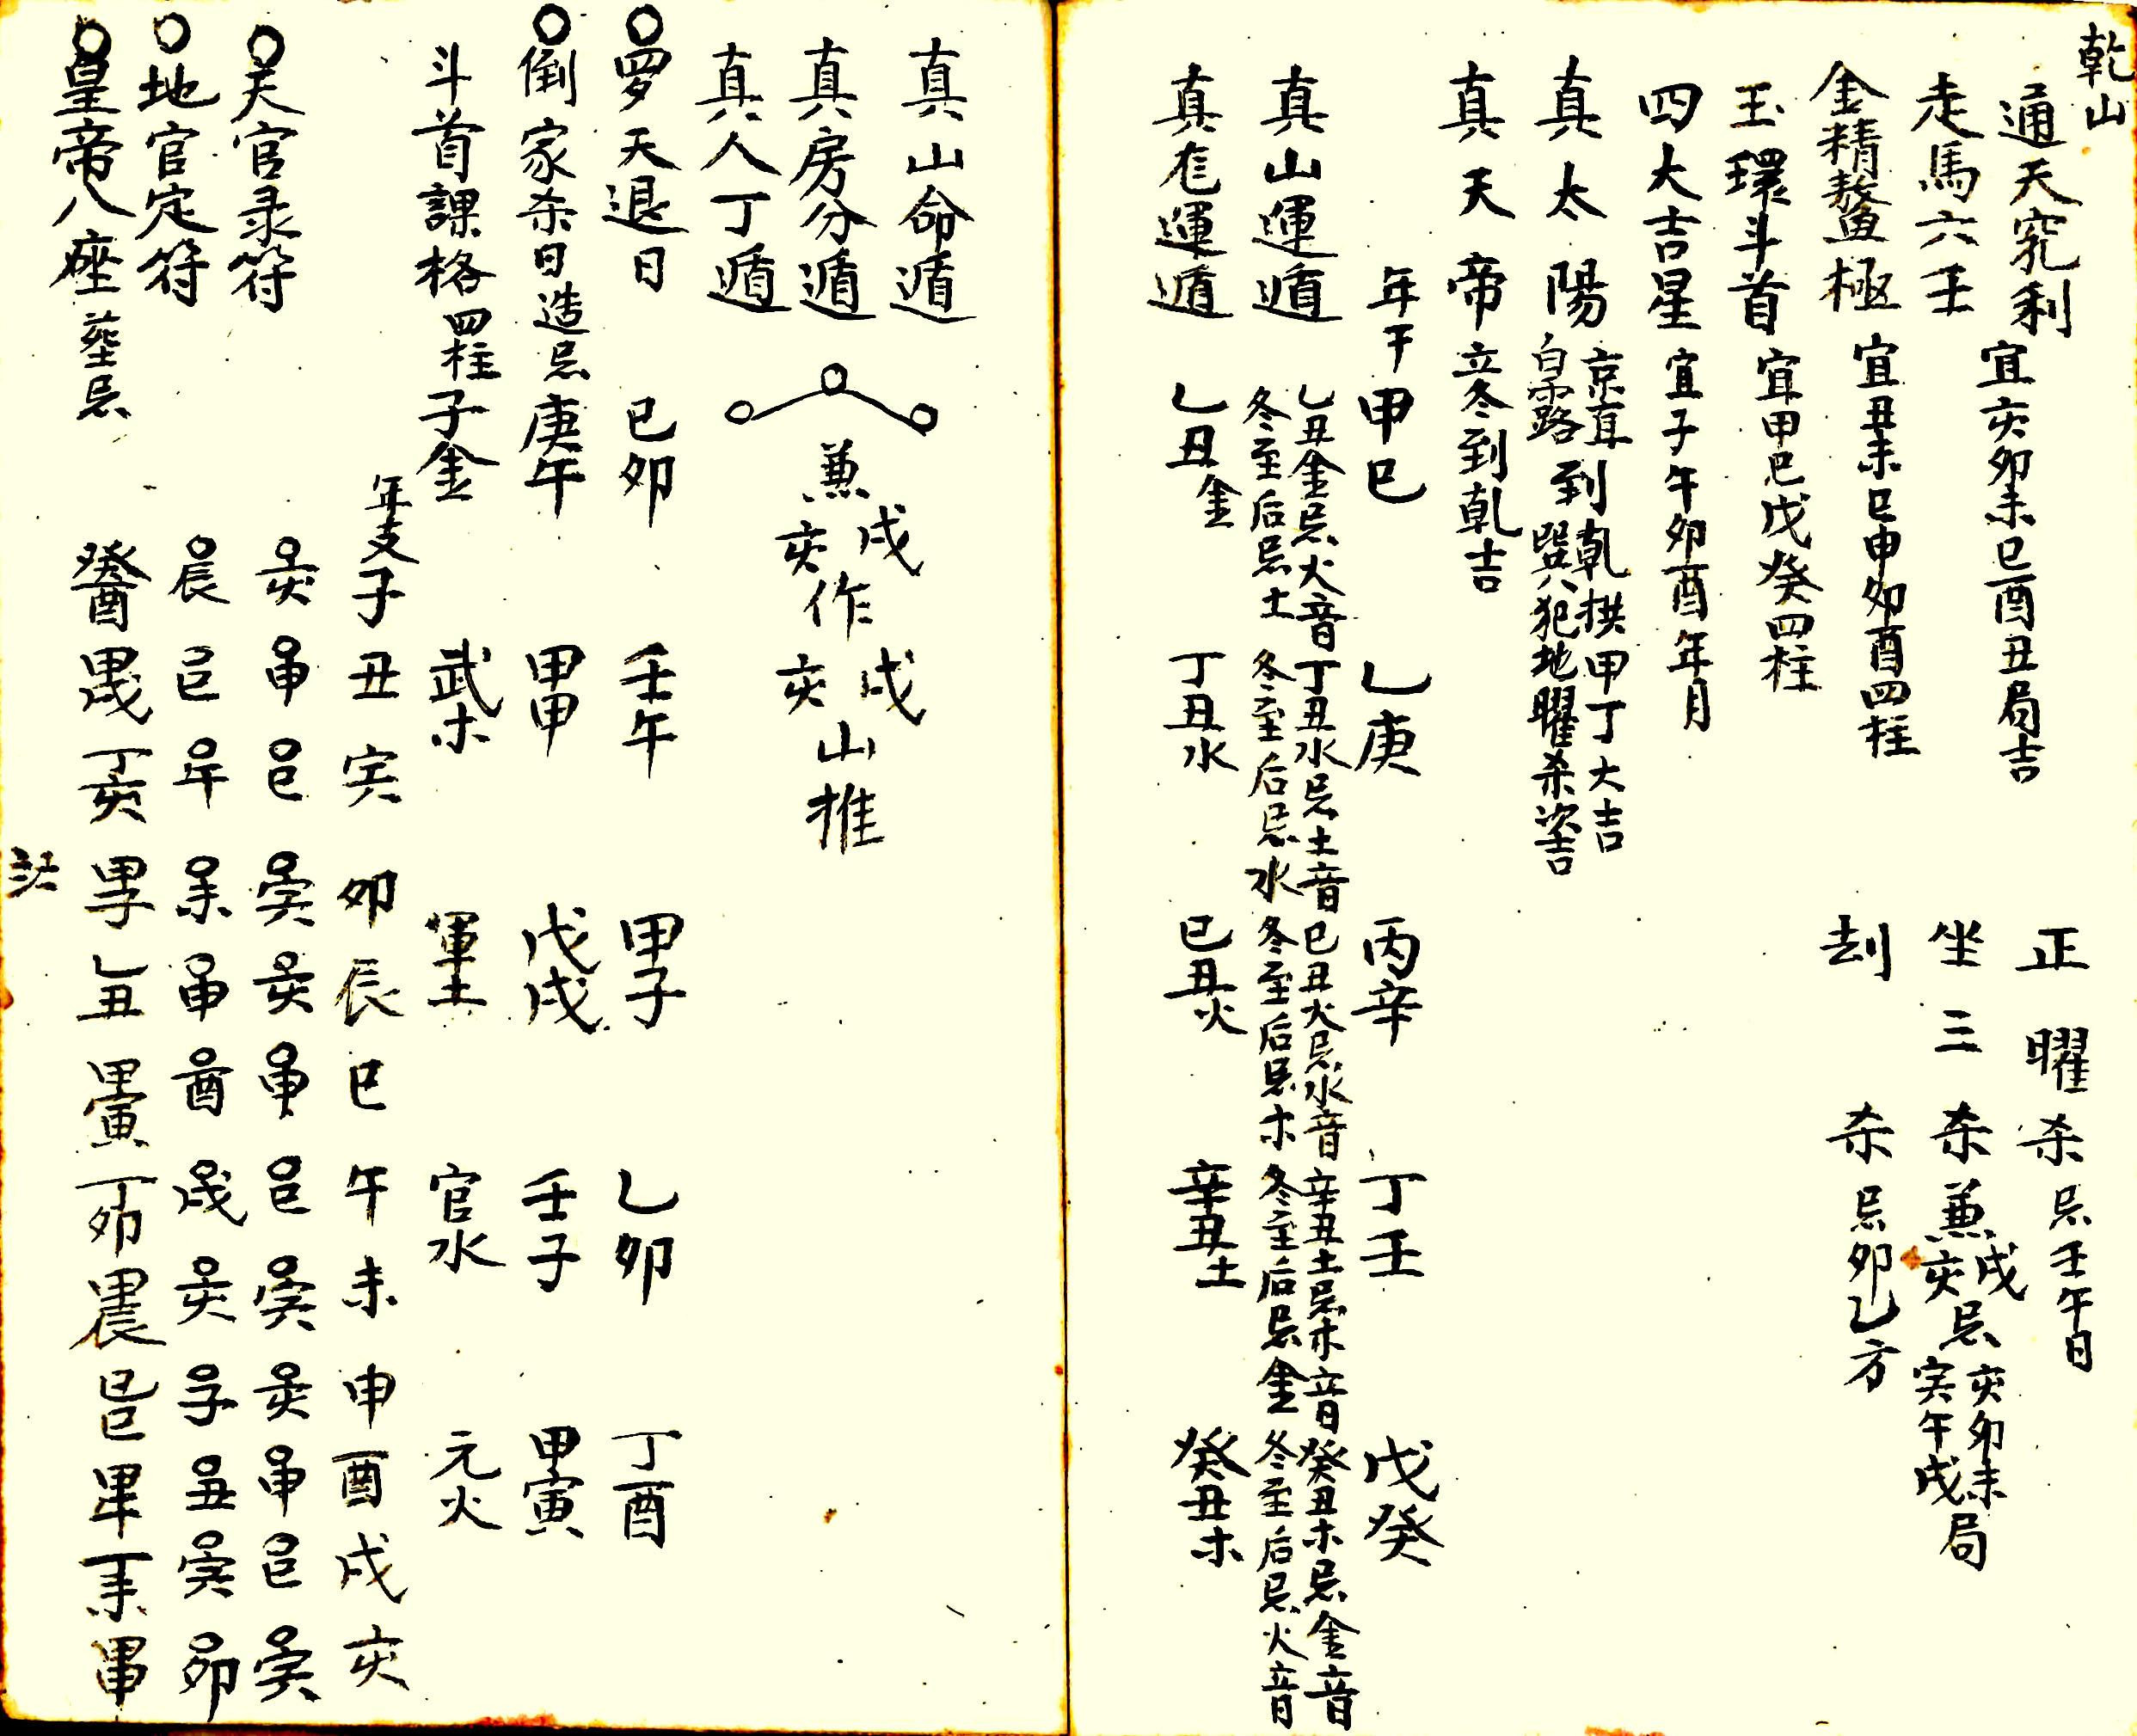 乾山
通天竅利 宜亥卯未巳酉丑局吉 正曜杀忌壬午日
走馬六壬 坐三杀兼戌亥忌亥卯未寅午戌局
金精鰲極 宜丑未巳申卯酉四柱 刦杀忌卯乙方
玉環斗首 宜甲巳戊癸四柱
四大吉星 宜子午卯酉年月
真太陽 京直白露到乾巽拱甲丁大吉 犯地曜杀
真天帝 立冬到乾吉
年干 甲巳 乙庚 丙辛 丁壬 戊癸
真山運遁 乙丑金忌火音 丁丑水忌土音 巳丑火忌水音 辛丑土忌木音 癸丑木忌金音
冬至后忌土 冬至后忌水 冬至后忌木 冬至后忌金 冬至后忌火音
運遁 乙丑金 丁丑水 巳丑火 辛丑土 癸丑木
真山命遁
真房分遁 兼戌亥作戌亥山推
真人丁遁
罗天退日 巳卯 壬午 甲子 乙卯 丁酉
倒家杀日造忌 庚午 甲申 戊戌 壬子 甲寅
斗首課格四柱 子金 武木 軍土 官水 元火
年支 子 丑 寅 卯 辰 巳 午 未 申 酉 戌 亥
天官录符 亥 申 巳 寅 亥 申 巳 寅 亥 申 巳 寅
地官定符 辰 巳 午 未 申 酉 戌 亥 子 丑 寅 卯
皇帝八座塟忌 癸酉 甲戌 丁亥 甲子 乙丑 甲寅 丁卯 甲辰 巳巳 甲午 丁未 甲申